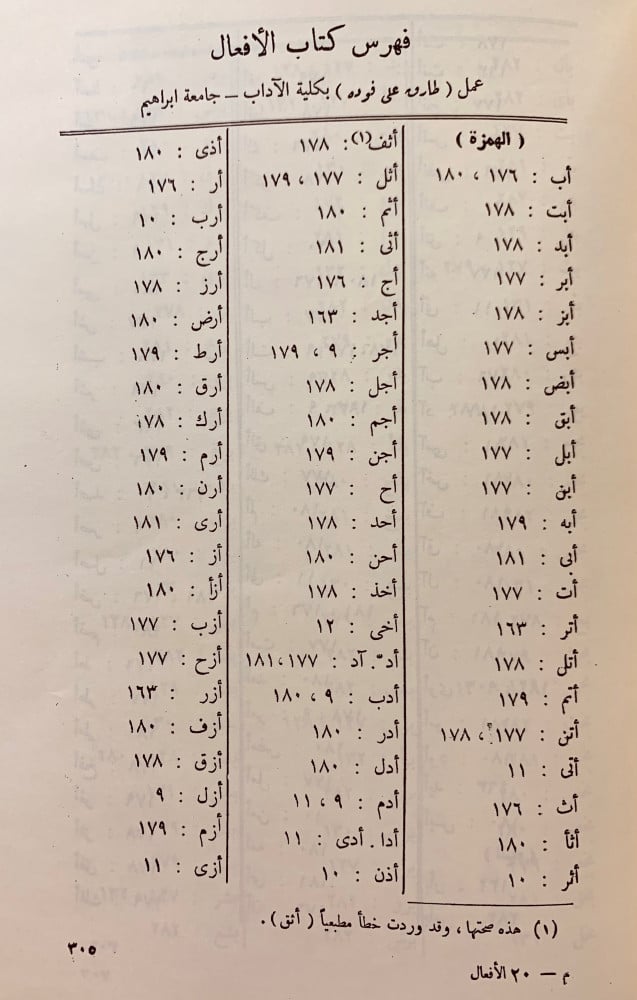 فهرس كتاب الأفعال
عمل (طارق على فوده) بكلية الآداب — جامعة ابراهيم
(الهمزة)
أب : ١٧٦ ، ١٨٠
أبت : ١٧٨
أبد : ١٧٨
أبر : ١٧٧
أبز : ١٧٨
أبس : ١٧٧
أبض : ١٧٨
أبق : ١٧٨
أبل : ١٧٧
أبن : ١٧٧
أبه : ١٧٩
أبى : ١٨١
أت : ١٧٧
أتر : ١٦٣
أتل : ١٧٨
أتم : ١٧٩
أتن : ١٧٧ ، ١٧٨
أتى : ١١
أث : ١٧٦
أثأ : ١٨٠
أثر : ١٠
أثف(١): ١٧٨
أثل : ١٧٧ ، ١٧٩
أثم : ١٨٠
أثى : ١٨١
أج : ١٧٦
أجد : ١٦٣
أجر : ٩ ، ١٧٩
أجل : ١٧٨
أجم : ١٨٠
أجن : ١٧٩
أح : ١٧٧
أحد : ١٧٨
أحن : ١٨٠
أخذ : ١٧٨
أخى : ١٢
أدّ. آد : ١٧٧ ، ١٨١
أدب : ٩ ، ١٨٠
أدر : ١٨٠
أدل : ١٨٠
أدم : ٩ ، ١١
أدا . أدى : ١١
أذن : ١٠
أذى : ١٨٠
أر : ١٧٦
أرب : ١٠
أرج : ١٨٠
أرز : ١٧٨
أرض : ١٨٠
أرط : ١٧٩
أرق : ١٨٠
أرك : ١٧٨
أرم : ١٧٩
أرن : ١٨٠
أرى : ١٨١
أز : ١٧٦
أزأ : ١٨٠
أزب : ١٧٧
أزح : ١٧٧
أزر : ١٦٣
أزف : ١٨٠
أزق : ١٧٨
أزل : ٩
أزم : ١٧٩
أزى : ١١
(١) هذه صحتها ، وقد وردت خطأ مطبعياً (أثق).
٣٠٥
م — ٢٠ الأفعال